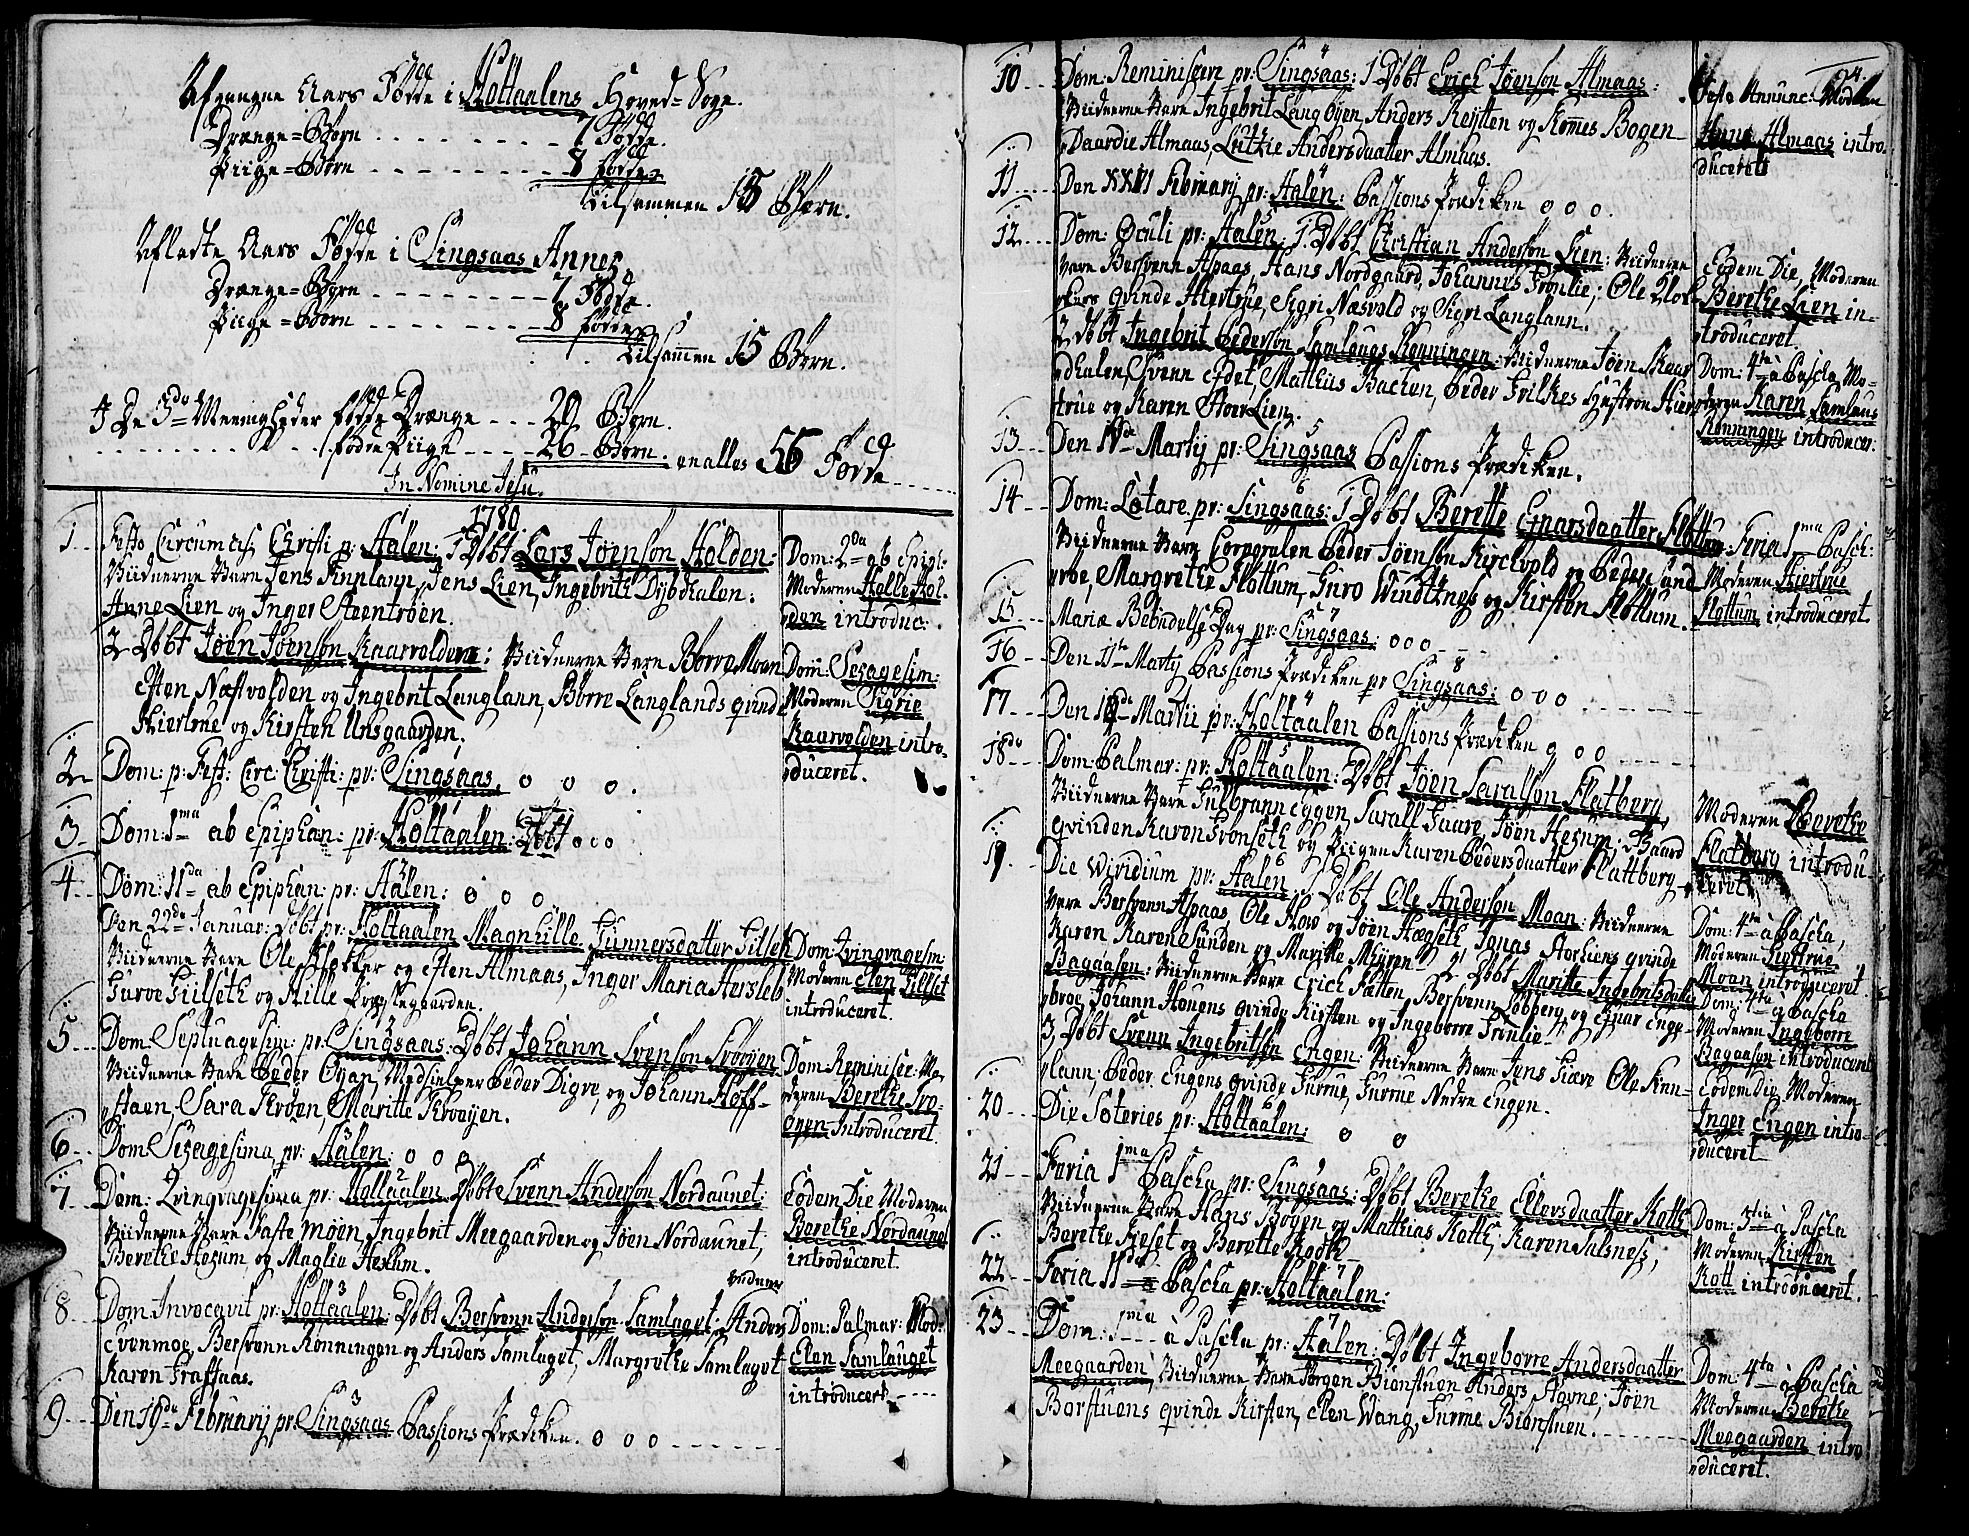 Afgangne Aars Fødde i Holtaalens Hoved-Sogn.
Drænge-Børn - - - - - - - - 7 Fødde.
Piige-Børn - - - - - - - - 8 fødde
tilsammen 15 Børn.
Afladte Aars Fødde i Singsaas Annex
Drænge-Børn - - - - - - - - 7 Fødde.
Piige-Børn - - - - - - - 8 fødde
tilsammen 15 Børn.
I De 3de Meenigheder fødde Drænge - - - 29 Børn.
fødde Piige - - - - 26 Børn. enalles 55 Fødde
In Nomine Jesu.
1780.
1 Festo Circumcis. Christi pr: Aalen: 1 Døbt Lars Jøenson Holden:
Viidnerne Vare Jens Finlann, Jens Lien, Ingebrith Dybdhalen:
Anne Lien og Inger Steentrøen.
Dom: 2da ab Epiph:
Moderen Halle Hol-
den introduc:
2 Døbt Jøen Jøenson Kaarvolden: Viidnerne Vare Børre Moan
Esten Næsvolden og Ingebrit Langlann, Børre Langlands qvinde
Hiertrue og Kirsten Unsgaarden.
Dom: Sexagesim:
Moderen Sigrie
Kaarvolden intro-
duceret.
2 Dom: p: Fest: Circ: Christi: pr: Singsaas o o o.
3 Dom: 1ma ab Epiphan: pr: Holtaalen: o o o
4 Dom: 11da ab Epiphan: pr: Aalen: o o o
Den 22de Januar: Døbt pr: Holtaalen Magnhille Finnersdatter Gilset
Viidnerne Vare Ole Klokker og Esten Almaas, Inger Maria Hersleb
Gurve Gilseth og Hille Præstegaarden.
Dom: Qvinqvagesim
Moderen Elen Gilset
introduceret.
5 Dom: Septuagesim: pr: Singsaas: Døbt Johann Svenson Frøeyen
Viidnerne Vare Peder Øyan, Medhielper Peder Digre, og Johann Hoff-
Haen, Sara Krøen, Maritte Krooyen.
Dom: Reminisce: Mo-
deren Berethe Frø-
oyen Introduceret.
6 Dom: Sexagesima pr: Aalen: o o o
7 Dom: Qvinqvagesima pr: Holtaalen Døbt Svenn Anderson Nordaunet:
Viidnerne Vare Saste Møen, Ingebrit Meegaarden og Jøen Nordaunet,
Berethe Hexum og Maglie Hexum.
Eodem Die Moderen
Berethe Nordaunet
introduceret.
8 Dom: Invocavit pr: Holtaalen: Døbt Bersvenn Anderson Samlaget: Anders
Evenmoe, Bersvenn Rønningen og Anders Samlaget, Margrethe Samlaget
Karen Graftaas.
Dom: Palmar: Mod:
Elen Samlauget
introducert - - - -
9 Den 19de February pr: Singsaas Passions Prædiken. o o o - - - - - -
10 Dom: Reminiscere pr: Singsaas: 1 Døbt Erich Jøenson Almaas:
Viidnerne Vare Ingebrit Lang Øyen, Anders Reitten og Bogen
Daardie Almaas, Lutzie Andersdaatter Almaas.
Festo Annunc: Moderen
Anne Almaas intro-
duceret
11 Den XXIII February pr: Aalen: Passions Prædiken o o o.
12 Dom: Oculi pr: Aalen: 1 Døbt Christian Anderson Lien: Viidnerne
Vare Bersvenn Aspaas, Hans Nordgaard, Johannes Frønlie, Ole Klok-
kers qvinde Hiertrue, Sigri Næsvold og Sigri Langlann.
Eodem Die, Moderen
Berethe Lien in-
troduceret.
2 Døbt Ingebrit Pederson Samlougs Rønningen: Viidnerne Jøen Skaar
dhalen, Svenn Eydet, Mathias Bachen, Peder Frilkes Hustroe Hier-
true og Karen Stoer Lien.
Dom: 4ta à Pascha Mo-
deren Karen Samlaus
Rønningen introducer:
13 Den Marty pr: Singsaas Passions Prædiken.
14 Dom: Lætare pr: Singsaas: 1 Døbt Berette Enarsdaatter Flottum:
Viidnerne Vare Corporalen Peder Jøenson Kirchvold og Peder Sund
roe, Margrethe Flottum, Giro Windtnes og Kirsten Flottum.
Feria 1ma Pasch:
Moderen Hiertrue
Flottum introduceret.
15 Mariæ Bebudelse Dag pr: Singsaas: o o o - - -
16 Den 11te Marty Passions Prædiken pr Singsaas: o o o
17 Den Martii pr: Holtaalen Passions Prædiken o o o - - - -
18 Dom: Palmar: pr: Holtaalen: Døbt Jøen Saralson Flatberg
Viidnerne Vare Gulbrann Eggen, Sarall Faare, Jøen Hexum, Baard
qvinden Karen Gronseth og Piigen Karen Pedersdaatter Flattberg
Moderen Berethe
Flatberg introdu-
ceret
19 Die Viridium pr: Aalen: 1 Døbt Ole Anderson Moan: Viidnerne
Vare Bersvenn Aspaas, Ole Kow og Jøen Hægseth, Jonas Storliens qvinde
Karen Karenesunden og Marithe Myren. 2 Døbt Maritte Ingebritsdatter
Bagaasen: Viidnerne Vare Erich Fætten, Bersvenn Løbberg og Enar Enge-
broe, Johann Houens qvinde Kirsten og Ingeborre Frønlie
3. Døbt Svenn Ingebritson Engen: Viidnerne Vare Jens Giære Ole Finn-
lann, Peder Engens qvinde Gurrue, Gurrue Nedre Engen.
Dom: 4ta à Pascha,
Moderen Hiertrue
Moan introduceret.
Dom: 4ta à Pascha
Moderen Ingeborre
Bagaasen introduceret
Eodem Die Moderen
Inger Engen intro-
duceret
20 Die Soteries pr: Holtaalen: o o
21 Feria 1ma Pascha pr: Singsaas: Døbt Berethe Ellersdaatter Kotth
Viidnerne Vare Hans Bogen og Matthias Kotth, Karen Talsness,
Berethe Fieset og Berette Kooth
Dom: 3tia à Pascha
Moderen Kirsten
Kott introduceret.
22 Feria 11da Pascha pr: Holtaalen:
23 Dom: 1ma à Pascha pr: Aalen: Døbt Ingeborre Andersdaatter
Meegaarden, Viidnerne Vare Jørgen Biønstuen Anders Aavne, Jøen
Borstuens qvinde Kirsten, Elen Wang, Gurrue Biønstuen.
Dom: 4ta à Pascha
Moderen Berethe
Meegaarden intro-
duceret.